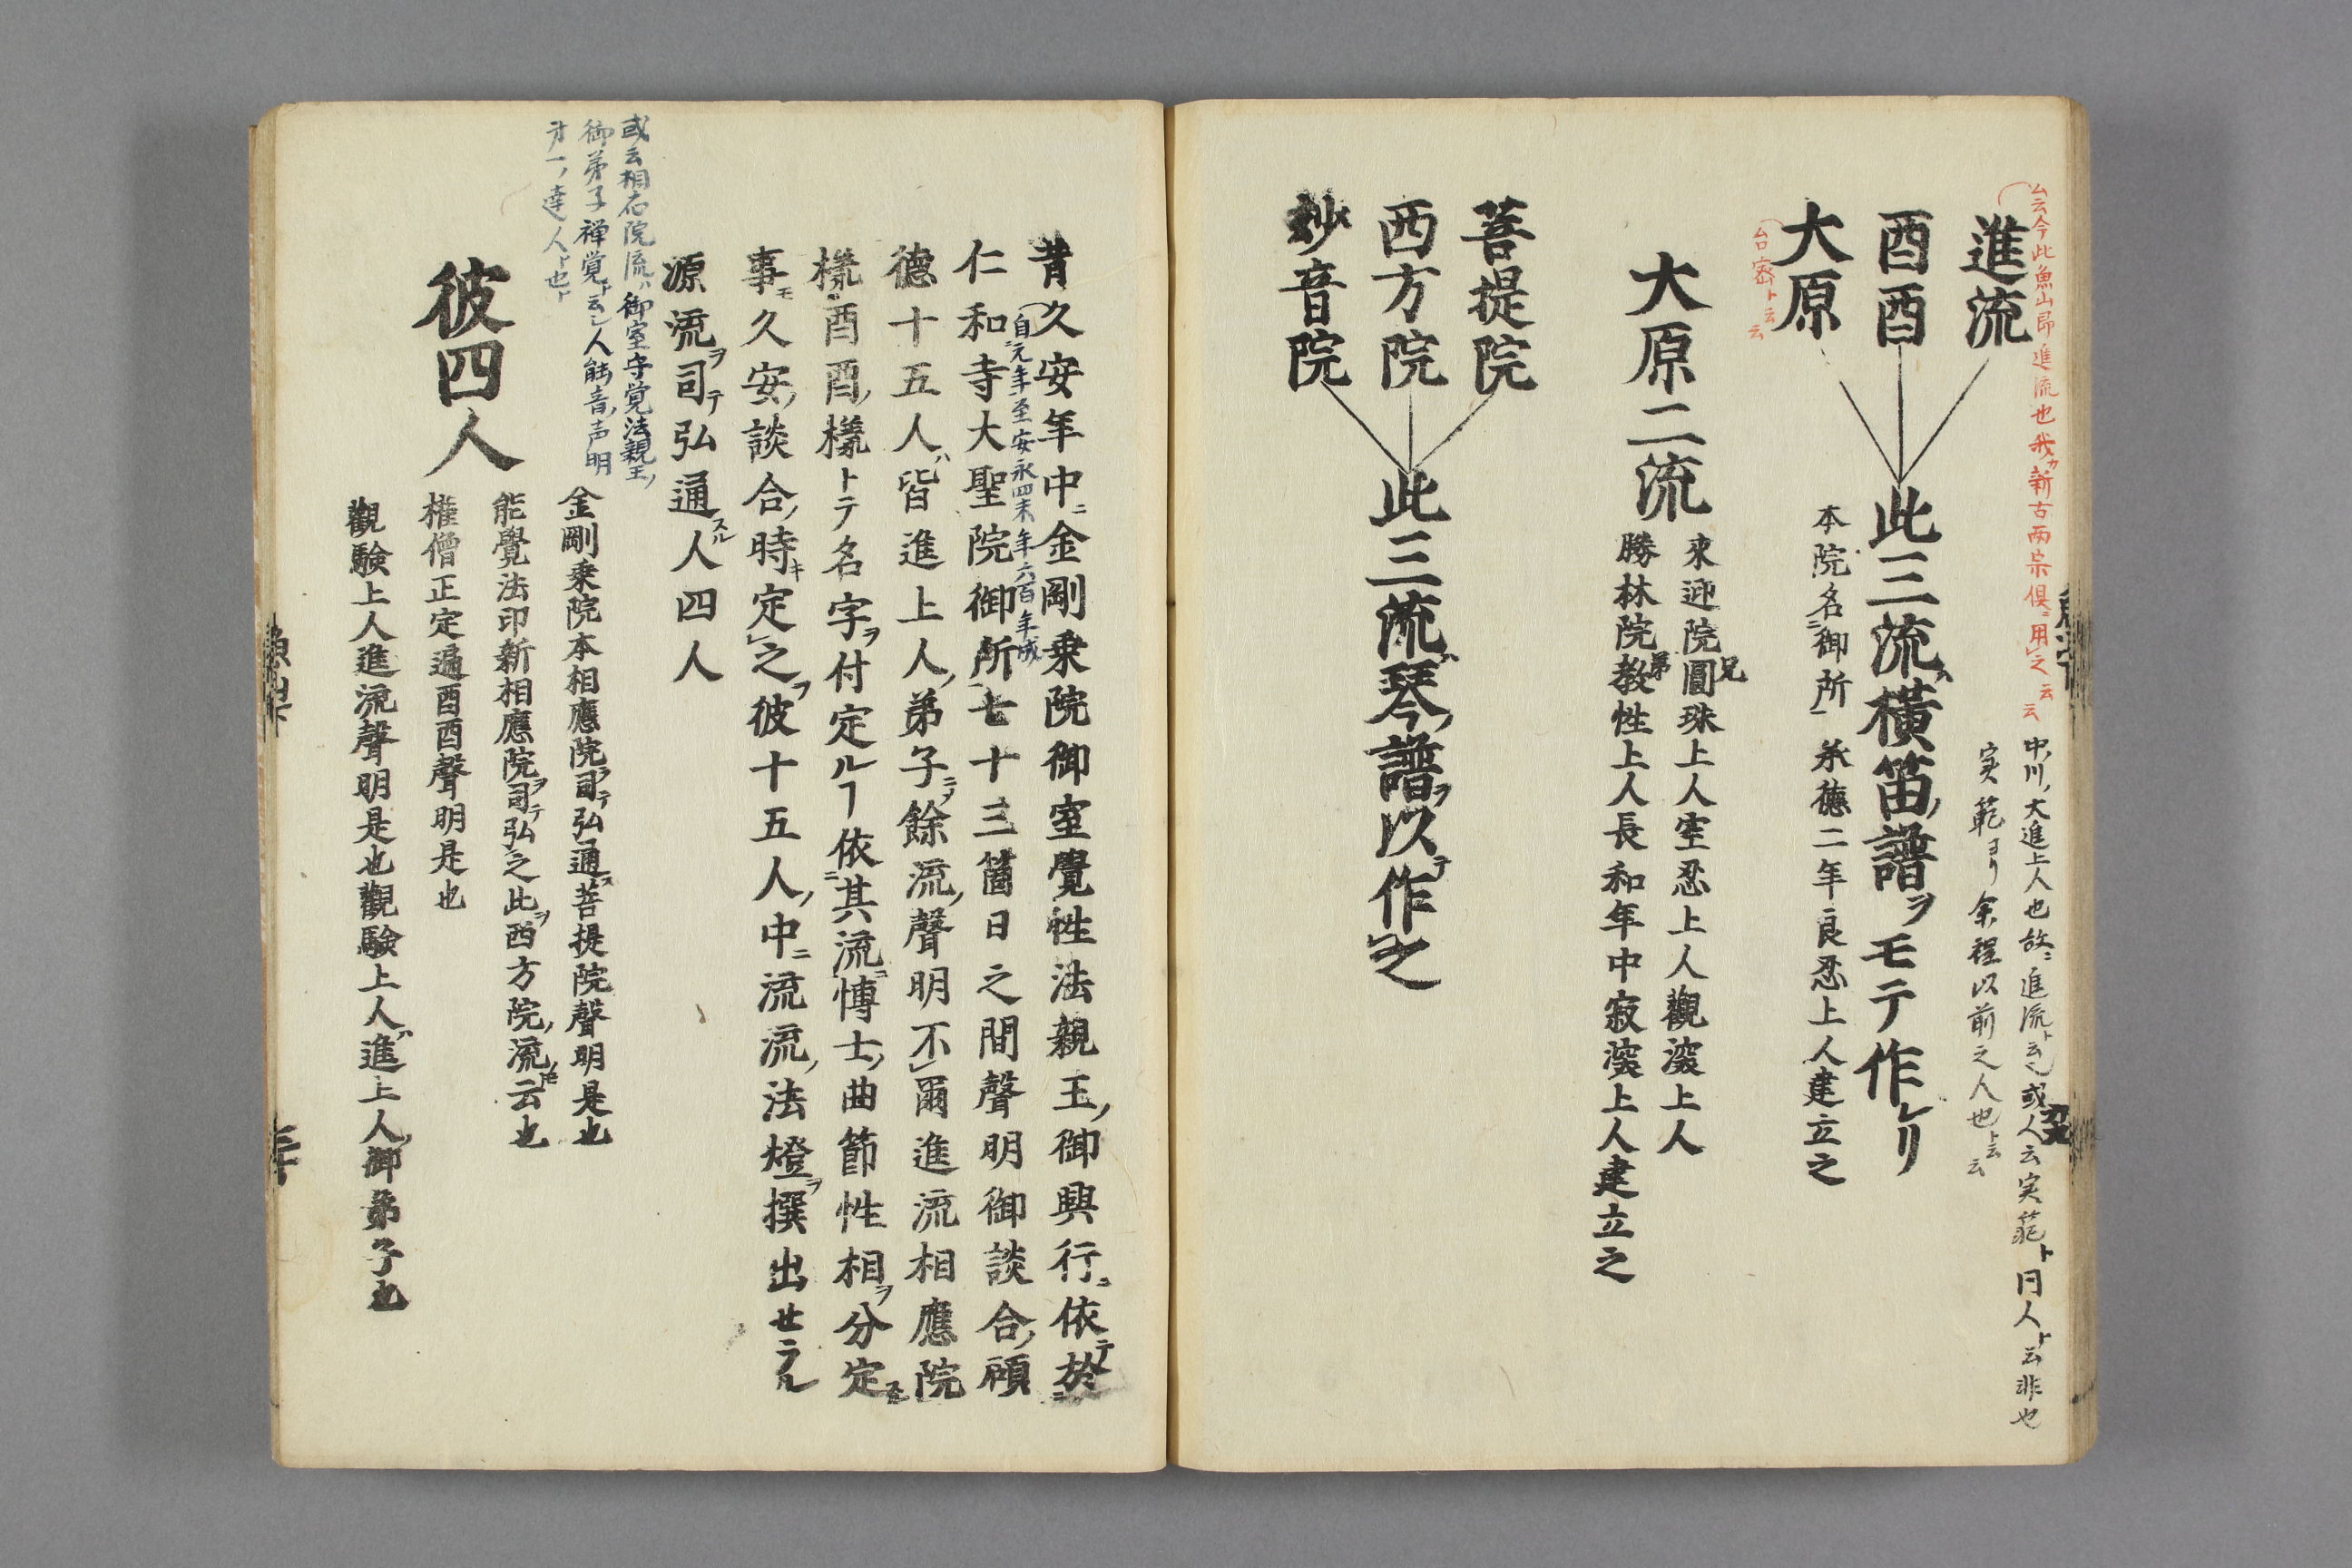 云今此魚山即進流也我カ新古両宗倶ニ用之云云
中川ノ大進上人也故ニ進流ト云也或人云実範ト同人ト云非也
実範ヨリ余程以前之人也ト云云
進流
酉酉
大原
台密ト云云
此三流ハ横笛ノ譜ヲモテ作レリ
本院名御所ニ 承徳二年良忍上人建立之
大原二流
来迎院圓珠上人室忍上人觀淁上人
兄
勝林院教性上人長和年中寂淁上人建立之
弟
菩提院
西方院
妙音院
此三流ハ琴ノ譜ヲ以テ作之
昔久安年中ニ金剛乗院御室覺性法親王ノ御興行ニ依テ於
自元年至安永四未年六百年成
仁和寺大聖院御所七十三箇日之間聲明御談合ノ碩
德十五人ハ皆進上人ノ弟子ニテ餘流ノ聲明不爾進流相應院
様酉酉ノ様トテ名字ヲ付定ルヿ依ニ其流ニ博士ノ曲節性相ヲ分定
事モ久安ノ談合ノ時キ定之ヲ彼十五人ノ中ニ流流ノ法燈ヲ撰出せラル
源流ヲ司テ弘通スル人四人
或云相応院流ハ御室守覚法親王ノ
御弟子禅覚ト云シ人能音声明
才一ノ達人ト也ト
彼四人
金剛乗院本相應院ヲ司テ弘通ス菩提院聲明是也
能覺法印新相應院ヲ司テ弘之ヲ此西方院ノ流ト云也
權僧正定遍酉酉聲明是也
觀験上人進流聲明是也觀験上人ハ進上人ノ御弟子也